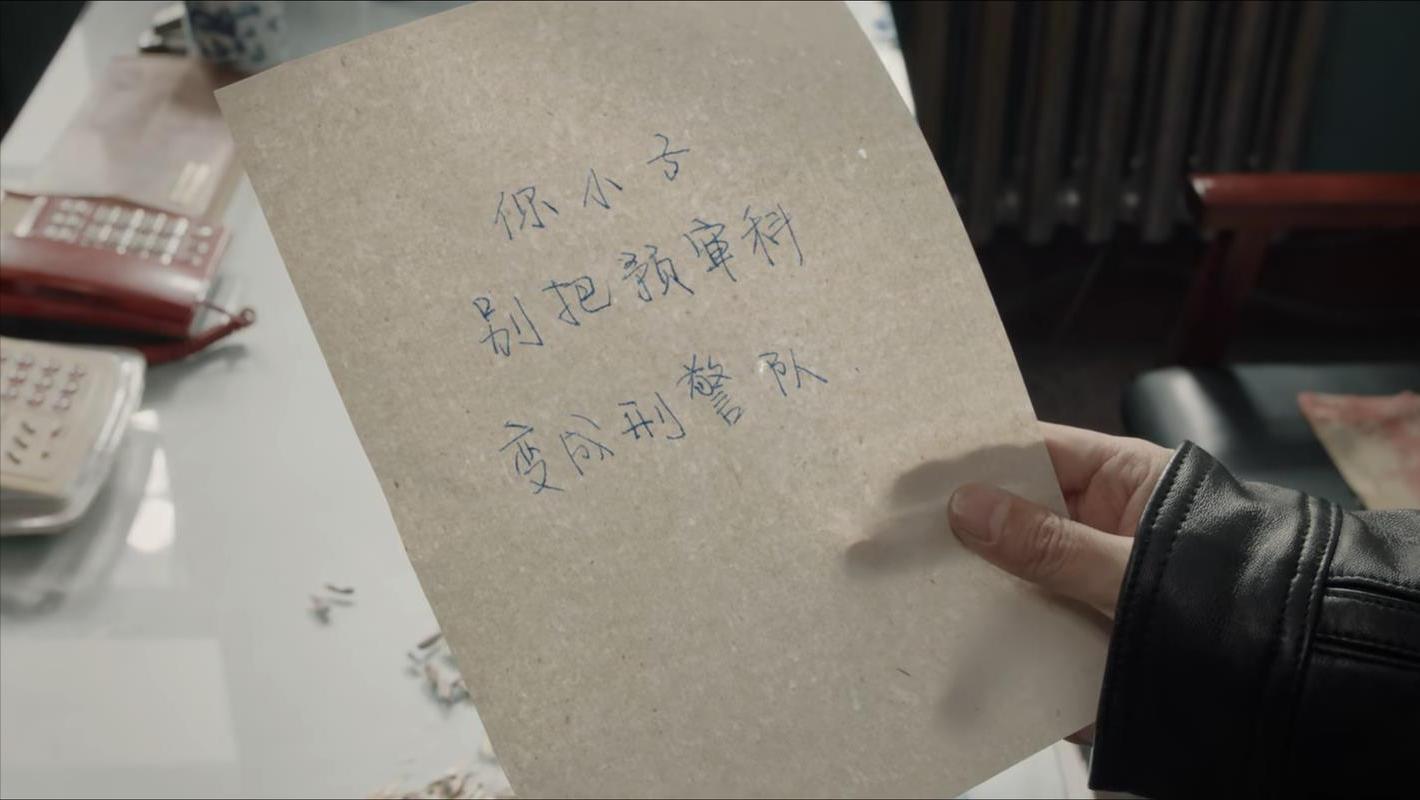 你小子
别把预审科
变成刑警队.